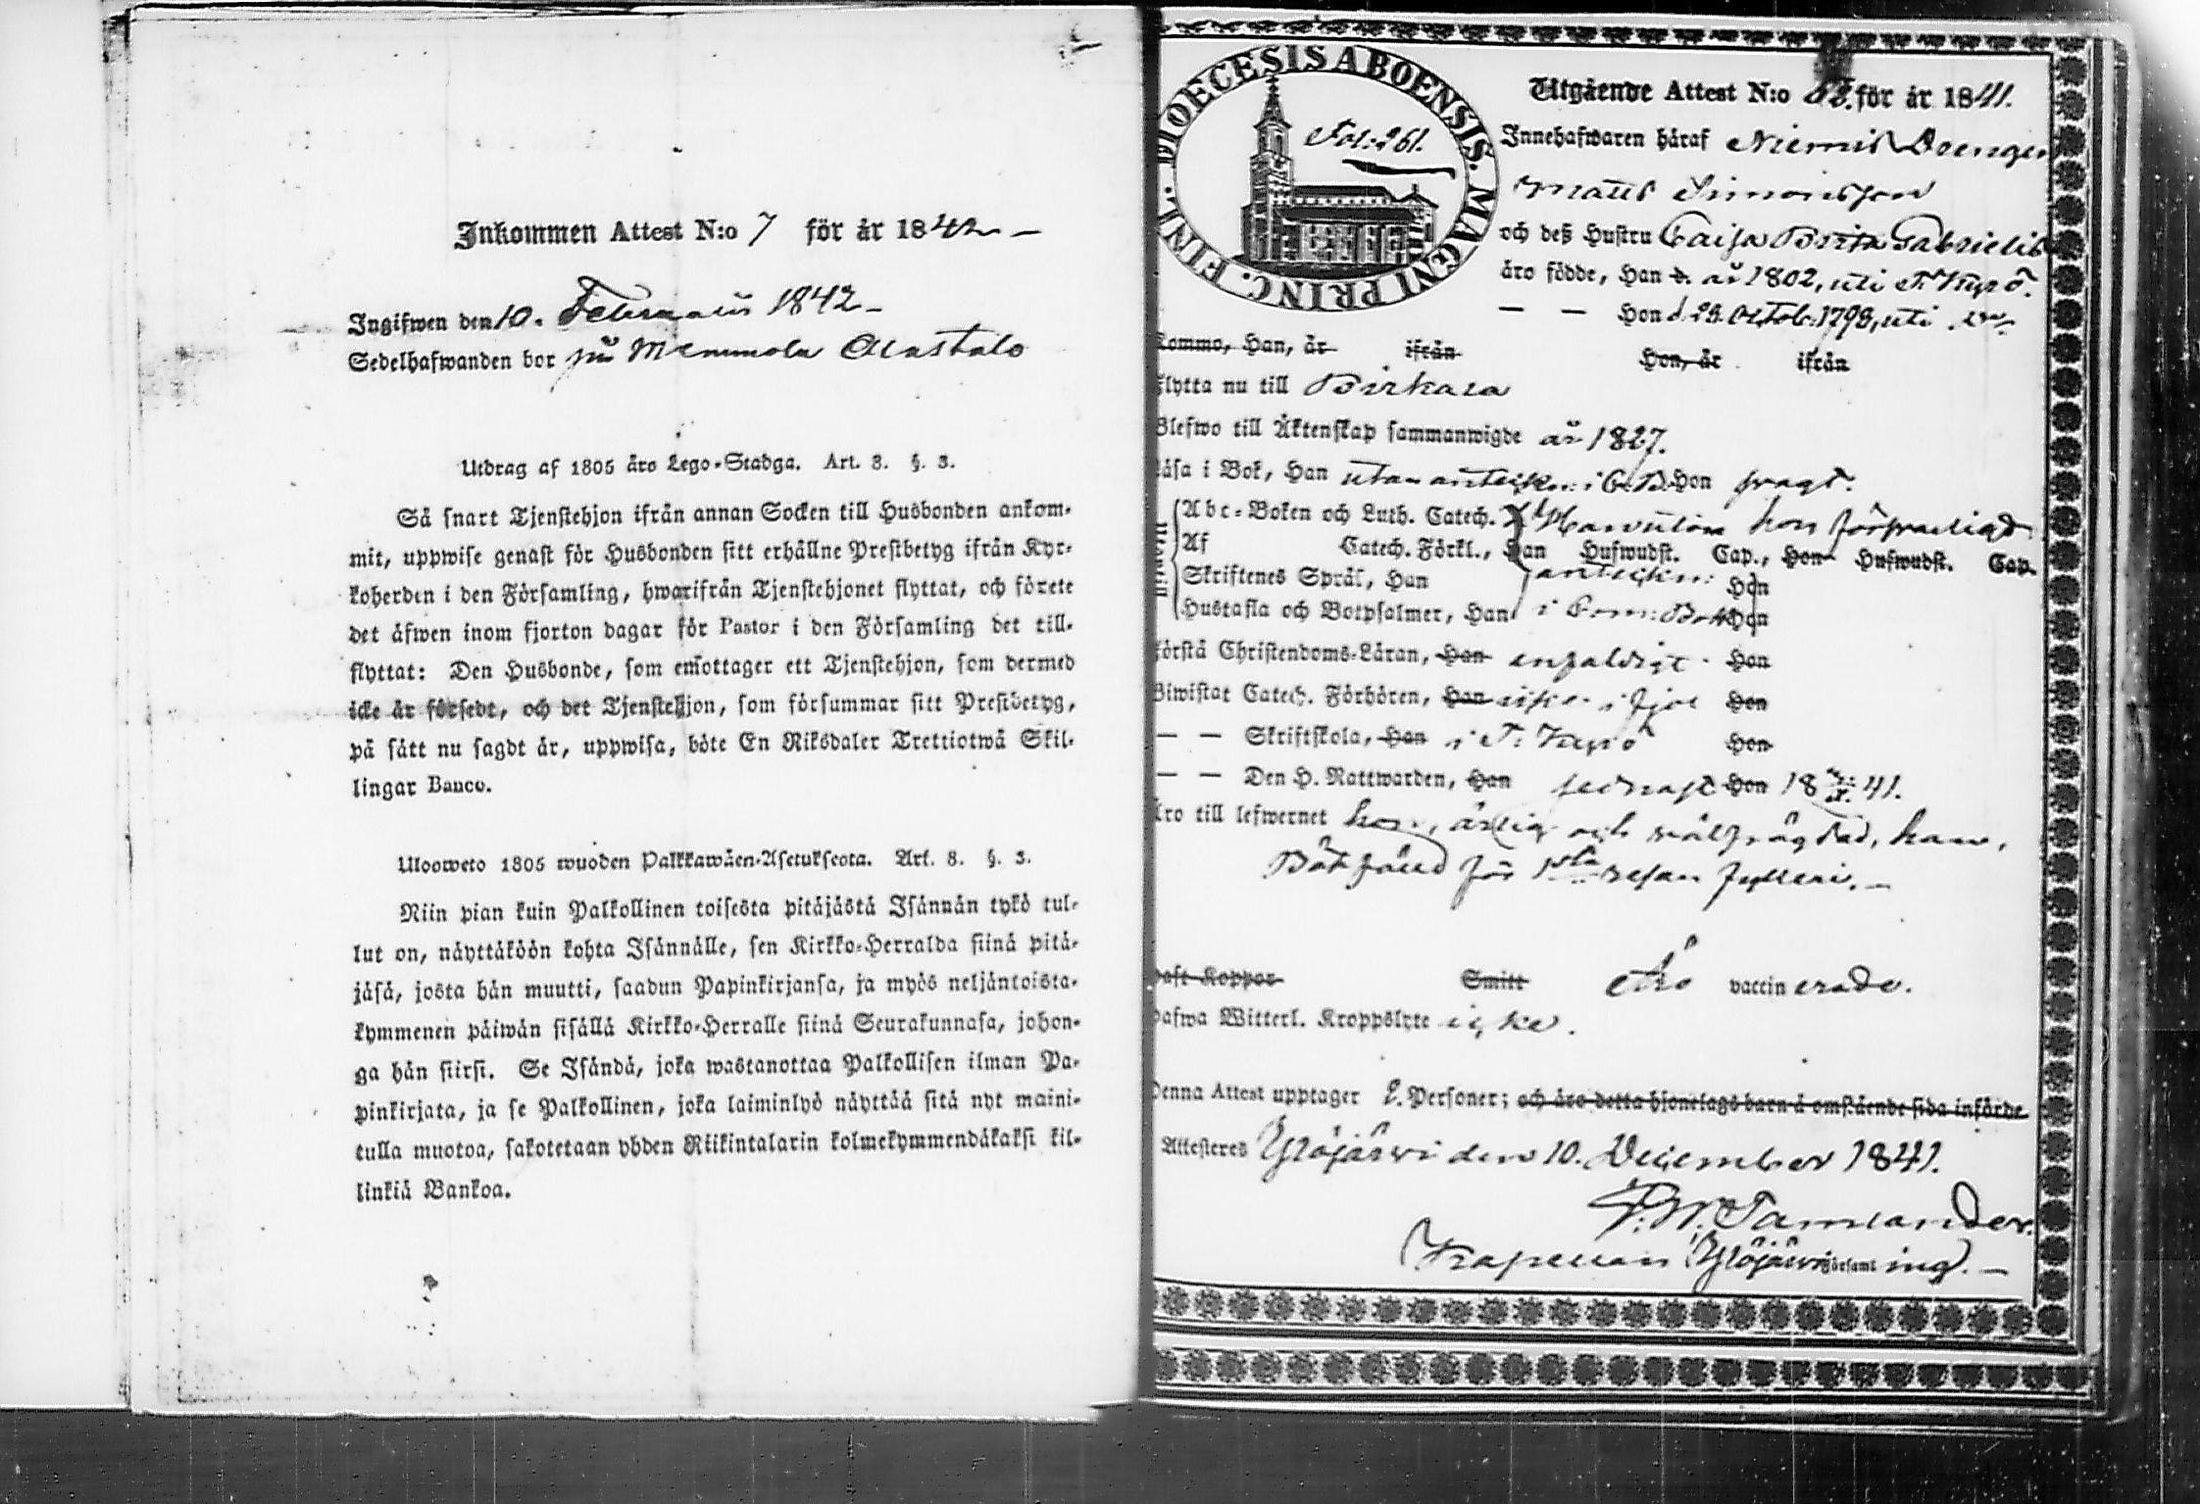 Inkommen Attest N:o 7 för år 1842 –
Ingifwen den 10. Februarii 1842 –
Sedelhafwanden bor på Memmola Alastalo
Utdrag af 1805 års Lego-Stadga. Art. 8. §. 3.
Så snart Tjenstehjon ifrån annan Socken till Husbonden ankom-
mit, uppwise genast för Husbonden sitt erhållne Prestbetyg ifrån Kyr-
koherden i den Församling, hwarifrån Tjenstehjonet flyttat, och förete
det äfwen inom fjorton dagar för Pastor i den Församling det till-
flyttat: Den Husbonde, som emottager ett Tjenstehjon, som dermed
icke är försedt, och det Tjenstehjon, som försummar sitt Prestbetyg,
på sätt nu sagdt är, uppwisa, böte En Riksdaler Trettiotwå Skil-
lingar Banco.
Ulosweto 1805 wuoden Palkkawäen-Asetuksesta. Art. 8. §. 3.
Niin pian kuin Palkollinen toisesta pitäjästä Isännän tykö tul-
lut on, näyttäköön kohta Isännälle, sen Kirkko-Herralda siinä pitä-
jäsä, josta hän muutti, saadun Papinkirjansa, ja myös neljäntoista-
kymmenen päiwän sisällä Kirkko-Herralle siinä Seurakunnasa, johon-
ga hän siirsi. Se Isändä, joka wastanottaa Palkollisen ilman Pa-
pinkirjata, ja se Palkollinen, joka laiminlyö näyttää sitä nyt maini-
tulla muotoa, sakotetaan yhden Riikintalarin kolmekymmendäkaksi kil-
linkiä Bankoa.
DIOECESIS ABOENSIS. MAGNI PRINC. FINL.
Fol: 261.
Utgående Attest N:o för år 1841.
Innehafwaren häraf Niemis Drengen
Matts Simonsson
och deß Hustru Caisa Brita Gabrielis
äro födde, Han d. år 1802, uti T. Kyrö.
– – Hon d. 29. Octob. 1798, uti
Kommo, Han, år ifrån Hon, år ifrån
flytta nu till Birkala
Blefwo till Äktenskap sammanwigde år 1827.
läsa i Bok, Han utan anteckn: i C.B. Hon svagt.
Abc-Boken och Luth. Catech. hon försvarligt
Af Catech. Förkl., Han Hufwudst. Cap., Hon Hufwudst. Cap.
Skriftenes Språk, Han anteckn: Hon
Hustafla och Botpsalmer, Han i Com: Bok Hon
förstå Christendoms-Läran, Han enfaldigt Hon
Biwistat Catech. Förhören, Han i fjol Hon
– – Skriftskola, Han i T. Kyrö Hon
– – Den H. Nattwarden, Han sednast Hon 18 41.
Äro till lefwernet hon, ärlig och wälfrägdad, han,
Bötfäld för 1sta resan fylleri. –
haft Koppor Smitt Äro vaccinerade.
hafwa Witterl. Kroppslyte icke.
Denna Attest upptager 2. Personer; och äro detta hjonelags barn å omstående sida införde
Attesteres Ylöjärwi den 10. December 1841.
F. W. Tamlander.
Kapellan i Ylöjärwi Församling. –